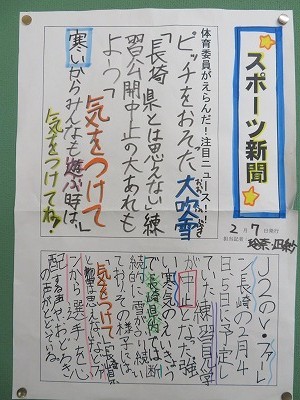 スポーツ新聞
2月7日発行
担当記者
体育委員がえらんだ！注目ニュース！
ピッチをおそった大吹雪
「長崎県とは思えない」練
習公開中止の大あれも
よう
気をつけて
寒いからみんなも遊ぶ時は、
気をつけてね！
J2のV・ファーレ
ン長崎の2月4
日、5日に予定し
ていた練習見学
が中止となった。強
い寒気のえいきょう
で、長崎県内では断
続的に雪がふり続
ており、その様子に
気をつけて
「長崎県
とは思えない」など
ンから選手を心
配する声やおどろき
の声がとどいている。